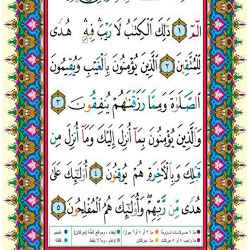 الٓمٓ ١ ذَٰلِكَ ٱلْكِتَٰبُ لَا رَيْبَ فِيهِ هُدًى
لِّلْمُتَّقِينَ ٢ ٱلَّذِينَ يُؤْمِنُونَ بِٱلْغَيْبِ وَيُقِيمُونَ
ٱلصَّلَوٰةَ وَمِمَّا رَزَقْنَٰهُمْ يُنفِقُونَ ٣
وَٱلَّذِينَ يُؤْمِنُونَ بِمَآ أُنزِلَ إِلَيْكَ وَمَآ أُنزِلَ مِن
قَبْلِكَ وَبِٱلْأَخِرَةِ هُمْ يُوقِنُونَ ٤ أُو۟لَٰٓئِكَ عَلَىٰ
هُدًى مِّن رَّبِّهِمْ وَأُو۟لَٰٓئِكَ هُمُ ٱلْمُفْلِحُونَ ٥